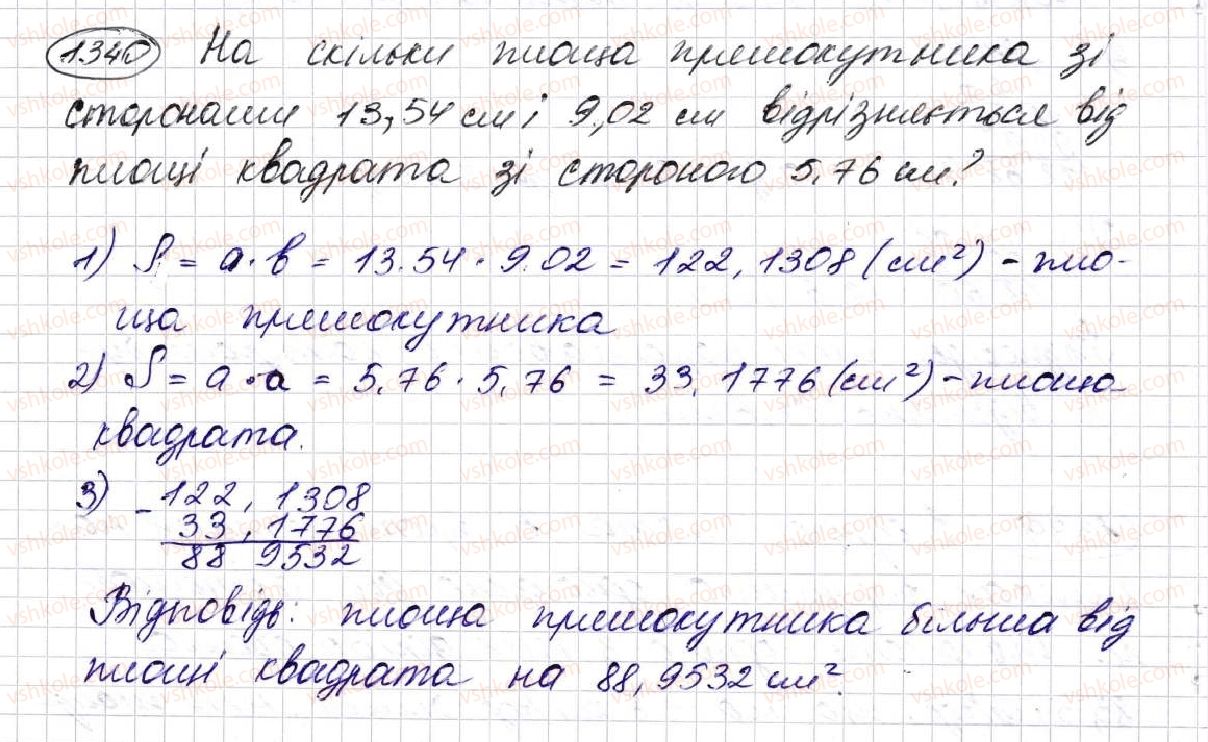 1340 На скільки площа прямокутника зі
сторонами 13,54 см і 9,02 см відрізняється від
площі квадрата зі стороною 5,76 см?
1) S = a · b = 13.54 · 9.02 = 122,1308 (см²) - пло-
ща прямокутника
2) S = a · a = 5,76 · 5,76 = 33,1776 (см²) - площа
квадрата.
3) - 122,1308
33,1776
88 9532
Відповідь: площа прямокутника більша від
площі квадрата на 88,9532 см².